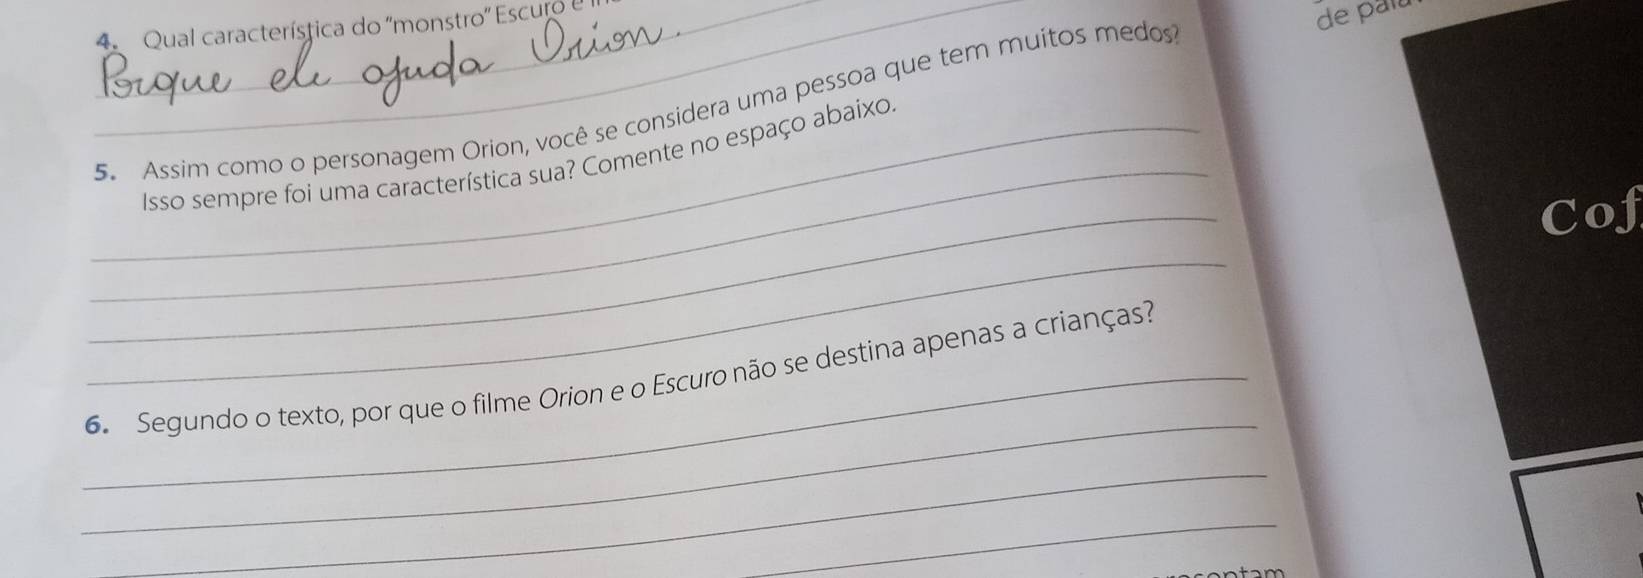 4. Qual característica do "monstro" Escuro é
Porque ele ajuda Orion.
5. Assim como o personagem Orion, você se considera uma pessoa que tem muitos medos?
Isso sempre foi uma característica sua? Comente no espaço abaixo.
6. Segundo o texto, por que o filme Orion e o Escuro não se destina apenas a crianças?
de
Cof